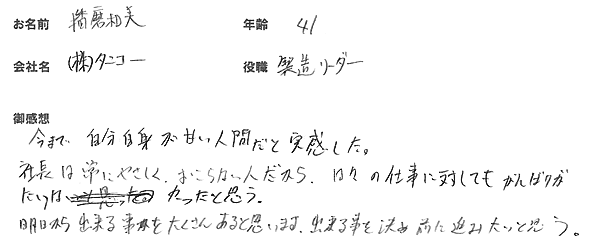 お名前 播磨和美 年齢 41
会社名 (株)タニコー 役職 製造リーダー
御感想
今まで 自分自身が甘い人間だと実感した。
社長は常にやさしく、おこらない人だから、日々の仕事に対しても がんばりが
たりなかったと思う。
明日から出来る事がたくさんあると思います、出来る事を決め前に進みたいと思う。